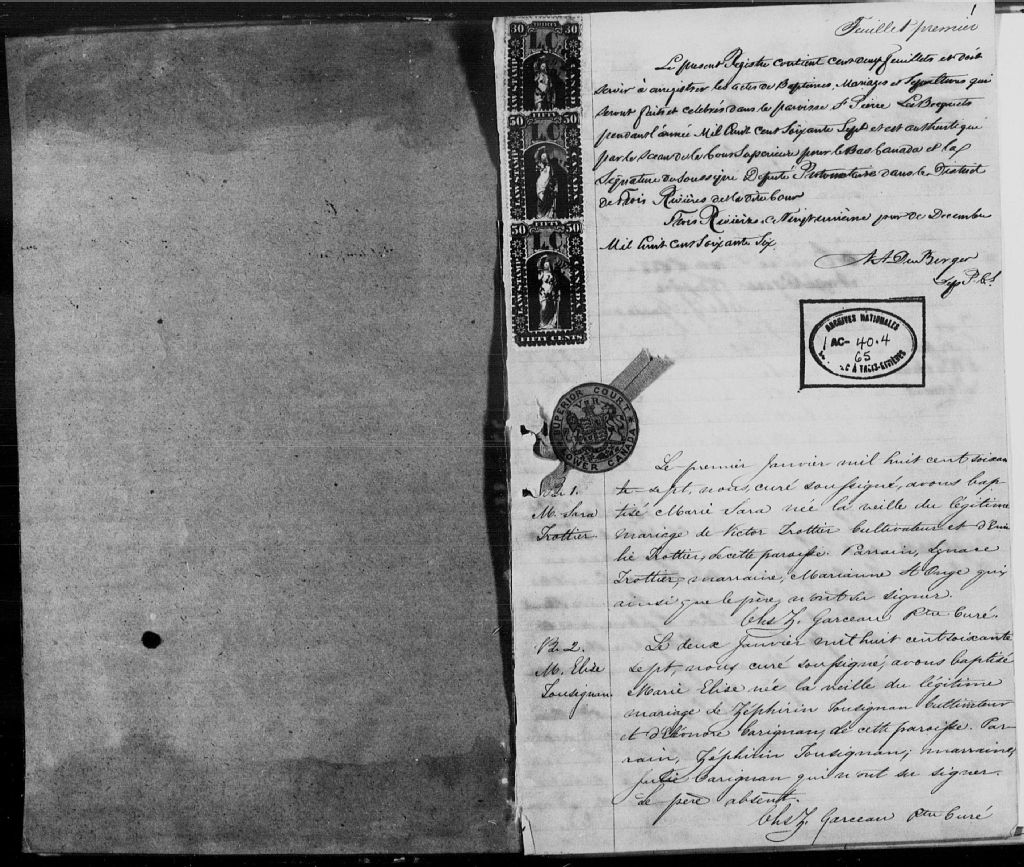 1
Feuillet premier
Le present Registre contient cent deux feuillets et doit
servir à enregistrer les actes de Baptêmes Mariages et Sepultures qui
seront faits et celebrés dans la paroisse St Pierre Les Becquets
pendant l'année Mil huit cent Soixante Sept et est authentiqué
par le sceau de la Cour Superieure pour le Bas Canada et la
Signature du Soussigné Deputé Protonotaire dans le District
de Trois Rivières de la dite Cour
Trois Rivières ce Vingt unième jour de Decembre
Mil huit cent Soixante Six
A A DuBerger
Dep P. C. S.
30 THIRTY 30
LC
LAW STAMP CANADA
FIFTY
50 50
LC
LAW STAMP CANADA
50 FIFTY 50
LC
LAW STAMP CANADA
FIFTY CENTS
ARCHIVES NATIONALES
AC- 40.4
65
C À TROIS-RIVIÈRES
SUPERIOR COURT
V R
LOWER CANADA
B. 1.
M. Sara
Trottier.
Le premier Janvier mil huit cent soixan
te-sept, nous, curé soussigné, avons bap
tisé Marie Sara née la veille du légitime
mariage de Victor Trottier Cultivateur et d'Emi
lie Trottier, de cette paroisse. Parrain, Ignace
Trottier, marraine, Marianne St Onge qui
ainsi que le père, n'ont su signer.
Chs Z. Garceau Ptre Curé.
B. 2.
M. Elise
Tousignan.
Le deux Janvier mil huit cent soixante
sept, nous curé soussigné, avons baptisé
Marie Elise née la veille du légitime
mariage de Zéphirin Tousignan Cultivateur
et d'Eléonore Carignan, de cette paroisse. Par-
rain, Zéphirin Tousignan; marraine,
Julie Carignan qui n'ont su signer.
Le père absent.
Chs Z. Garceau Ptre Curé